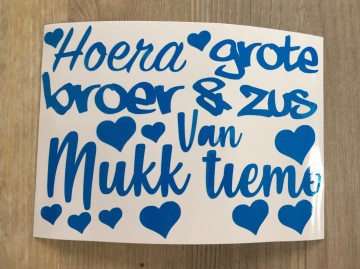 Hoera grote
broer & zus
Van
Mukk tieme